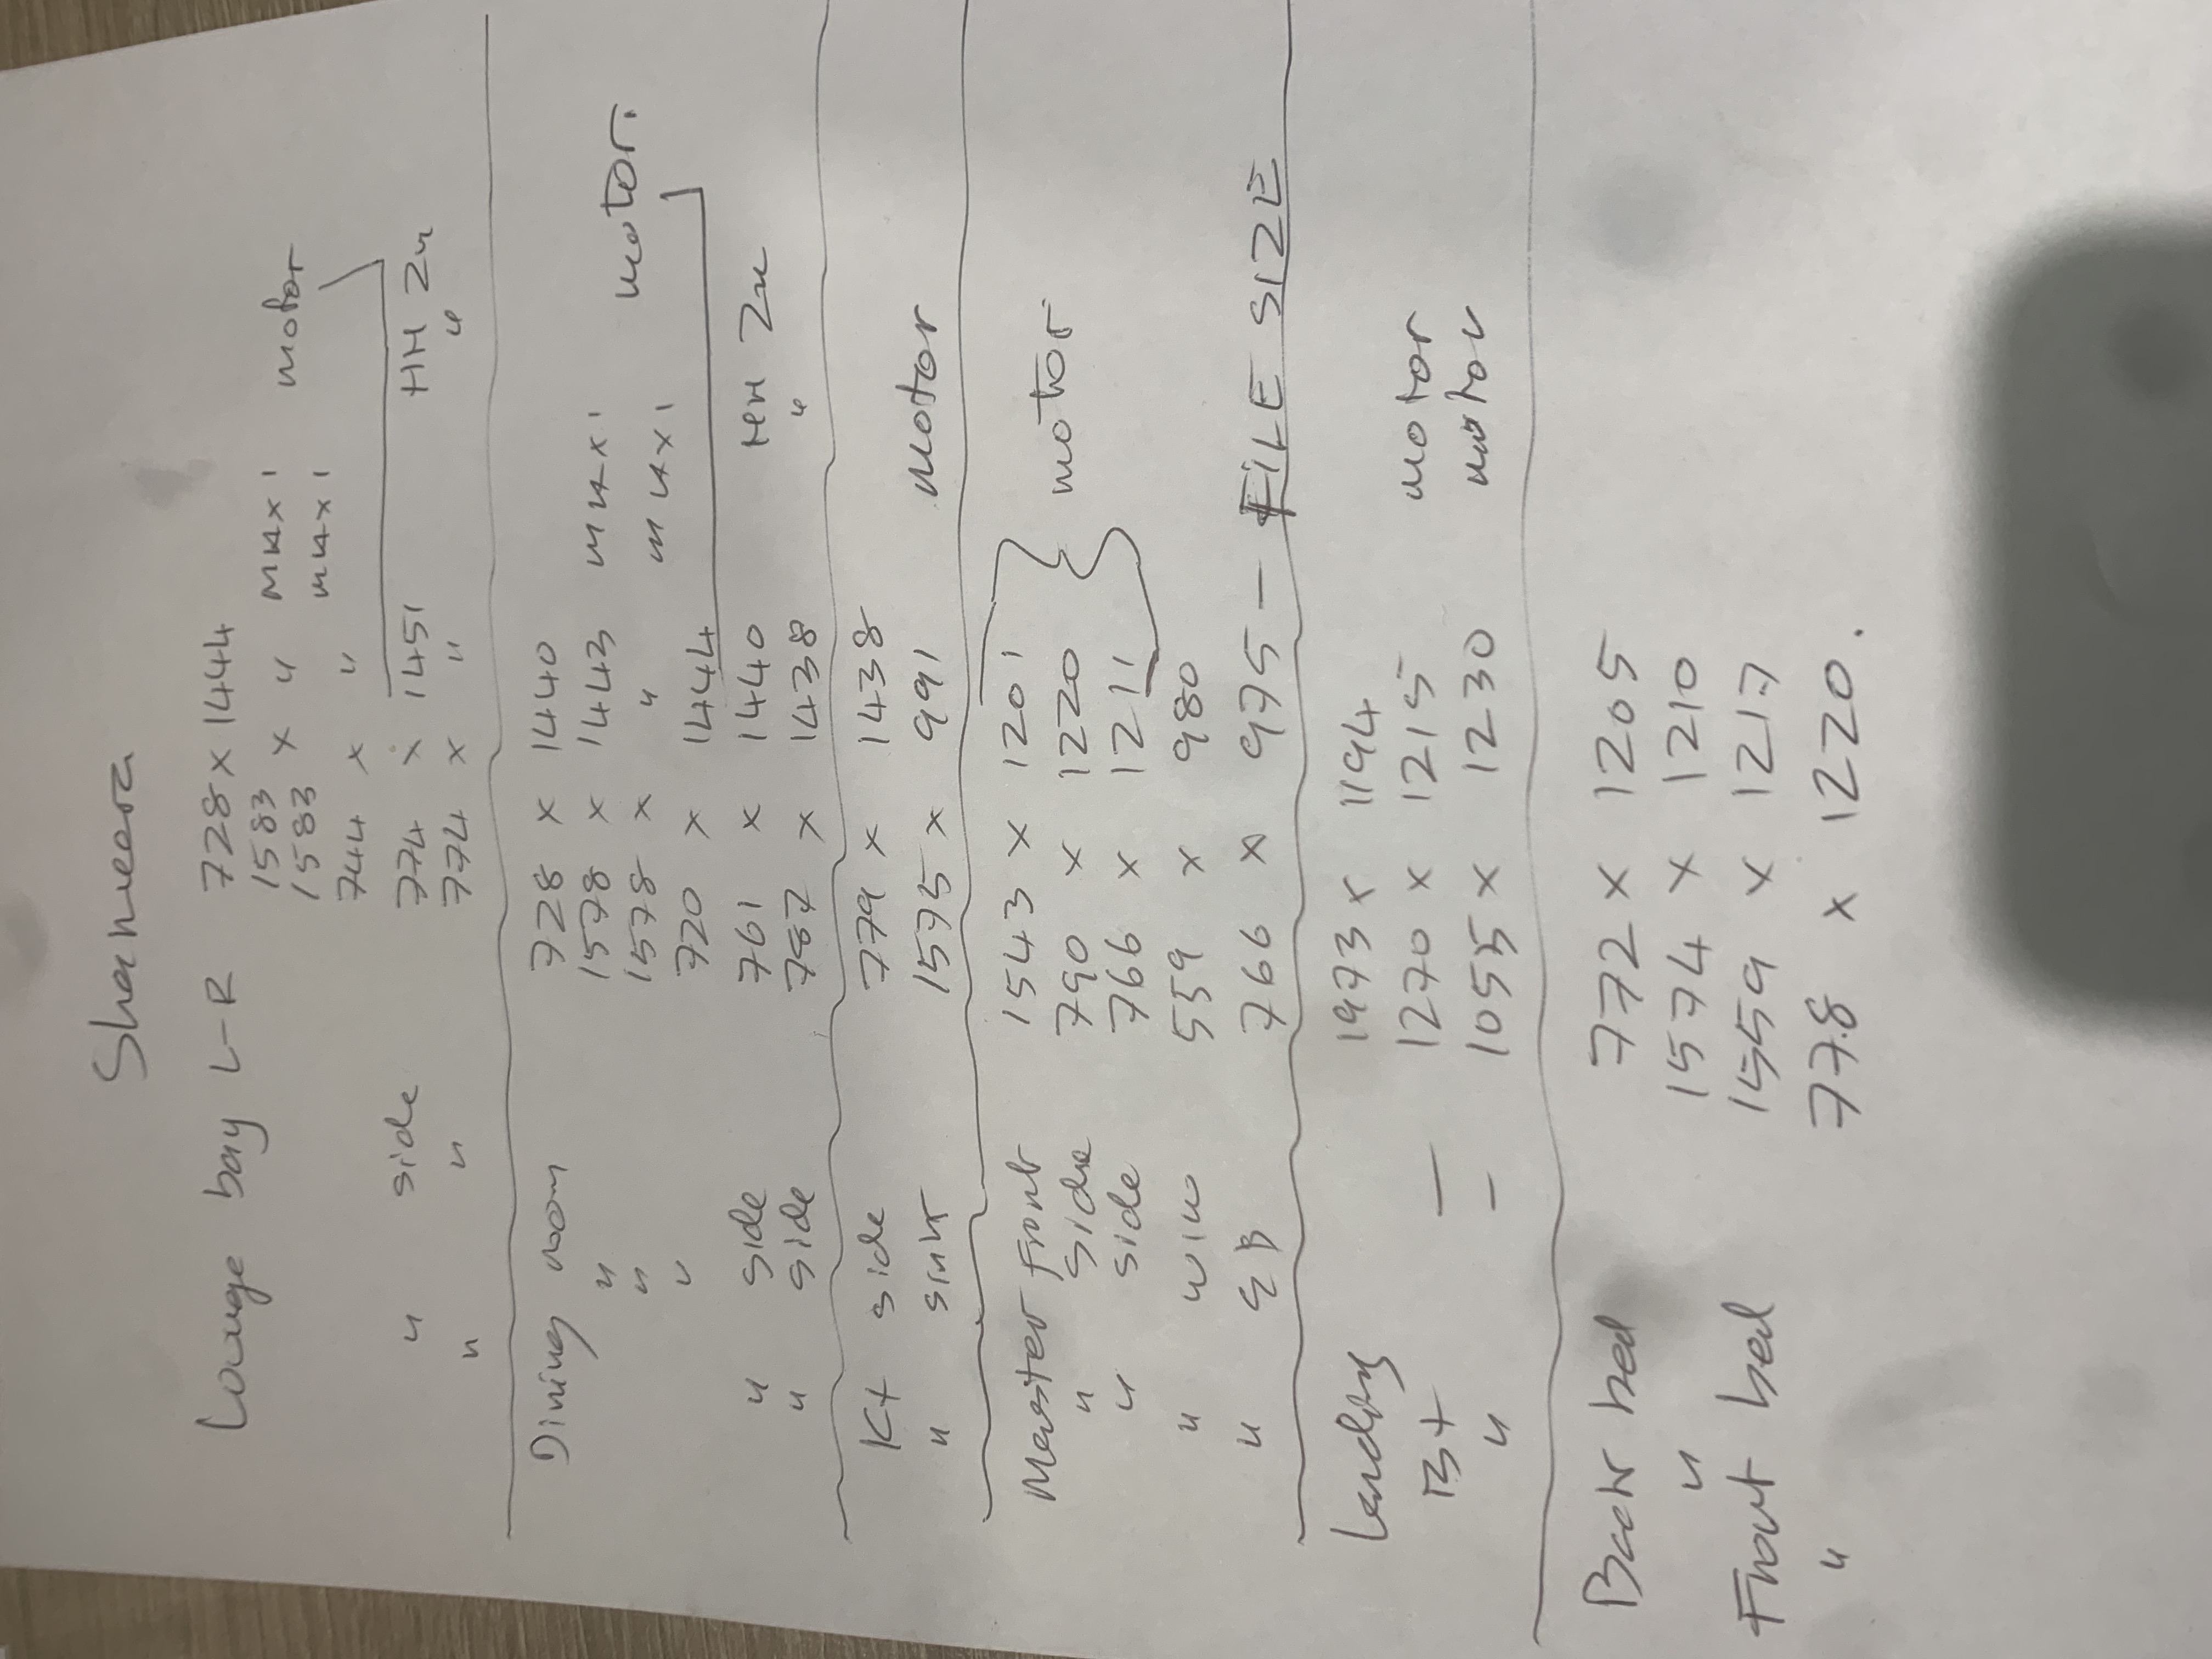 Shameera
Lounge bay L-R 728 x 1444
1583 x " max 1 motor
1583 x " max 1
744 x "
" side 774 x 1451 HH 2m
" " 774 x " "
Dining room 728 x 1440
" 1578 x 1443 max 1 motor.
" 1578 x " max 1
" 720 x 1444
" side 761 x 1440 HH 2m
" side 767 x 1438 "
Kt side 779 x 1438
" sink 1575 x 991 motor
Master front 1543 x 1201
" side 790 x 1220 motor
" side 766 x 1211
" win 559 x 980
" 766 x 975 - FILE SIZE
Landing 1973 x 1194
Bt - 1270 x 1215 motor
" - 1055 x 1230 motor
Back bed 772 x 1205
" 1574 x 1210
Front bed 1559 x 1217
" 778 x 1220.